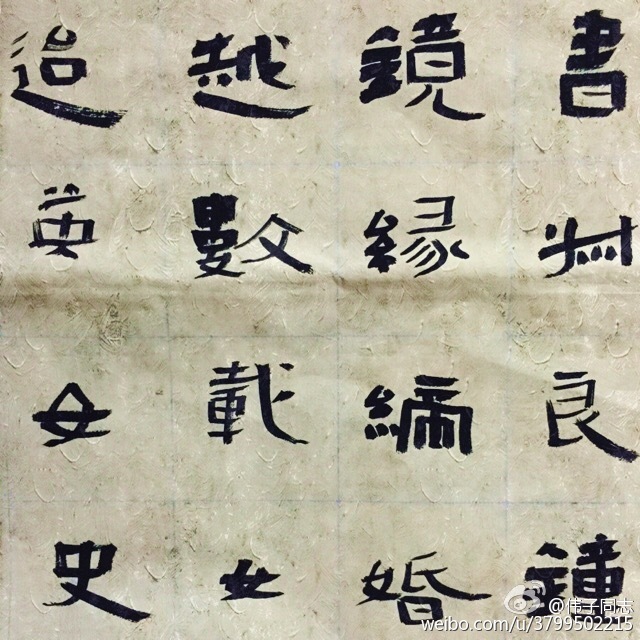 書州良鐘
鏡縁締婚
越數載女
迨英女史
@伟子同志
weibo.com/u/3799502215